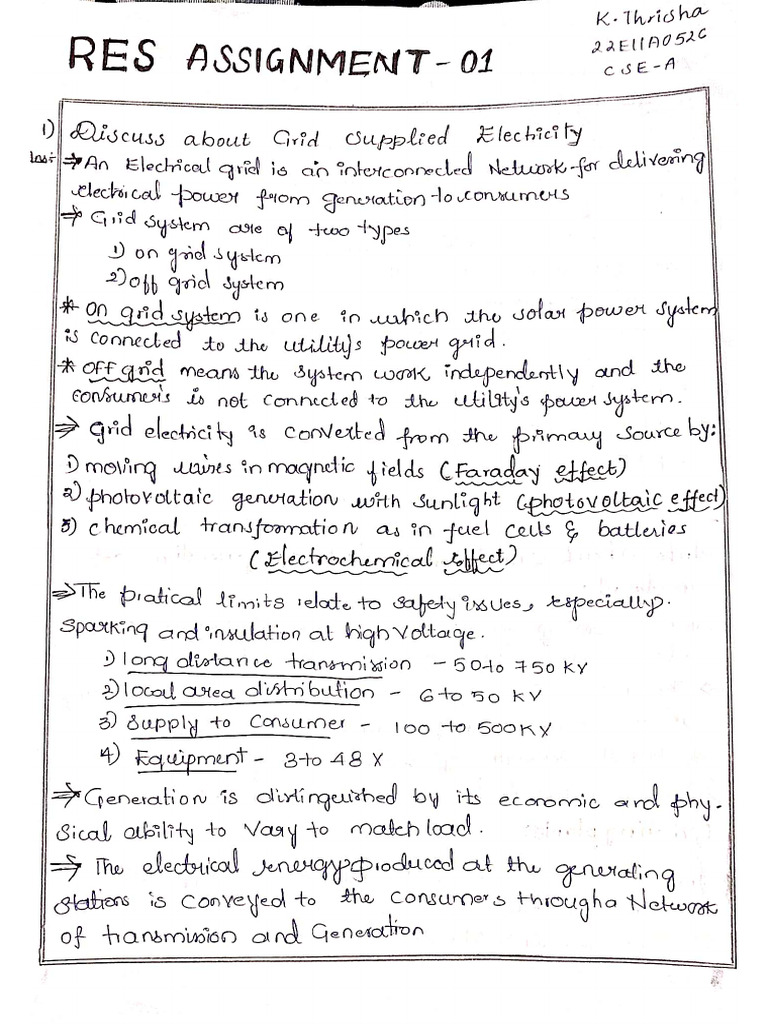 K. Thrisha
22E11A052C
CSE-A
RES ASSIGNMENT - 01
1) Discuss about Grid Supplied Electricity
Ans:- ⇒ An Electrical grid is an interconnected Network for delivering
electrical power from generation to consumers
⇒ Grid system are of two types
1) on grid system
2) off grid system
* on grid system is one in which the solar power system
is connected to the utility's power grid.
* off grid means the system work independently and the
consumer's is not connected to the utility's power system.
⇒ grid electricity is converted from the primary source by:
1) moving wires in magnetic fields (Faraday effect)
2) photovoltaic generation with sunlight (photovoltaic effect)
3) chemical transformation as in fuel cells & batteries
(Electrochemical effect)
⇒ The pratical limits relate to safety issues, especially.
Sparking and insulation at high Voltage.
1) long distance transmission - 50 to 750 KV
2) local area distribution - 6 to 50 KV
3) Supply to Consumer - 100 to 500 KV
4) Equipment - 3 to 48 V
⇒ Generation is distinguished by its economic and phy-
sical ability to Vary to match load.
⇒ The electrical energy produced at the generating
stations is conveyed to the consumers through a Network
of transmission and Generation